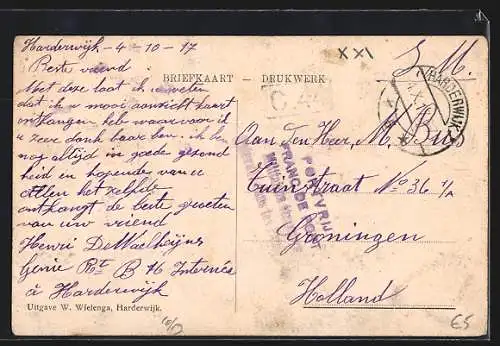 Harderwijk - 4 - 10 - 17
Beste vriend
Met deze laat ik u weten
dat ik u mooi aanzicht kaart
ontfangen heb waarvoor ik
u zeer dank baar ben. ik ben
nog altijd in goede gezond
heid en hopende van u
allen het zelfde
ontfangt de beste groeten
van uw vriend
Henri De
Genie Rt B 16 Internés
à Harderwijk
Uitgave W. Wielenga, Harderwijk.
BRIEFKAART - DRUKWERK
XXI
S. M.
HARDERWIJK
PORTVRIJ
FRANC DE PORT
Aan den Heer, M. Bus
Tuinstraat No 36 1/A
Groningen
Holland